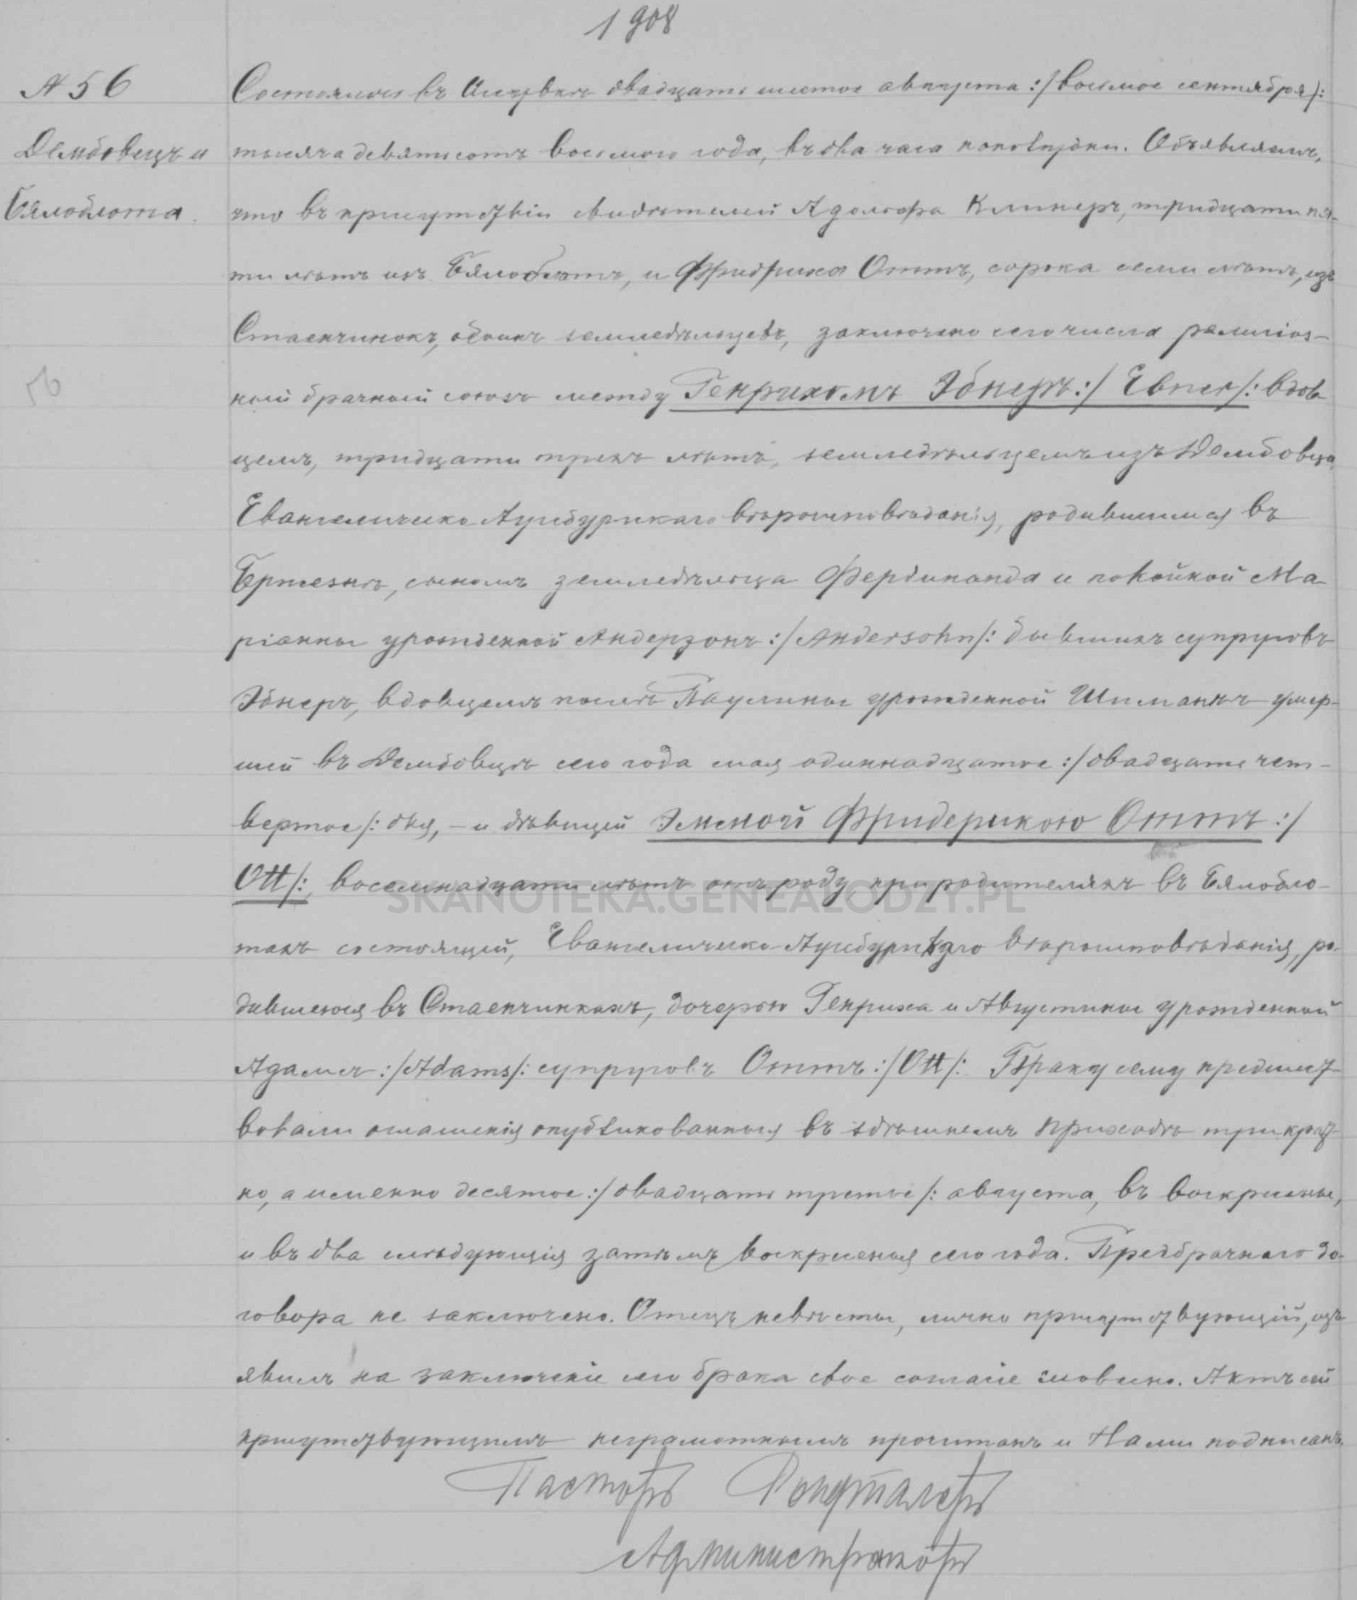 1908
№ 56
Дембовецъ и
Бялоблота.
56
Состоялось въ двадцать шестое августа :/восьмое сентября/:
тысяча девятьсотъ восьмого года, въ два часа пополудни. Объявляемъ,
что въ присутствіи свидѣтелей Адольфа Клингеръ, тридцати пя-
ти лѣтъ изъ Бялоблотъ, и Фридриха Оттъ, сорока семи лѣтъ, изъ
обоихъ земледѣльцевъ, заключено сего числа религіоз-
ный брачный союзъ между Генрихомъ Эбнеръ :/ Ebner /: вдов-
цемъ, тридцати трехъ лѣтъ, земледѣльцемъ изъ Дембовца
Евангелическо Аугсбургскаго вѣроисповѣданія, родившимся въ
сыномъ земледѣльца Фердинанда и покойной Ма-
ріанны урожденной Андерзонъ :/Andersohn/: бывшихъ супруговъ
Эбнеръ, вдовцемъ послѣ Паулины урожденной Шиманкъ умер-
шей въ Дембовцѣ сего года мая одиннадцатое :/двадцать чет-
вертое/: дня, – и дѣвицей Эмилией Фридерикою Оттъ :/
Ott/:, восемнадцати лѣтъ отъ роду, при родителяхъ въ Бялобло-
тахъ состоящей, Евангелическо-Аугсбургскаго вѣроисповѣданія, ро-
дившеюся въ дочерью Генриха и Августины урожденной
Адамсъ :/Adams/: супруговъ Оттъ :/Ott/: Браку сему предшест-
вовали оглашенія опубликованныя въ здѣшнемъ приходѣ трикрат-
но, а именно десятое :/двадцать третье/: августа, въ воскресенье,
и въ два слѣдующія затѣмъ воскресенья сего года. Предбрачнаго до-
говора не заключено. Отецъ невѣсты, лично присутствующій, изъ-
явилъ на заключеніе сего брака свое согласіе словесно. Актъ сей
присутствующимъ неграмотнымъ прочитанъ и Нами подписанъ.
Пасторъ
Администраторъ
SKANOTEKA.GENEALODZY.PL